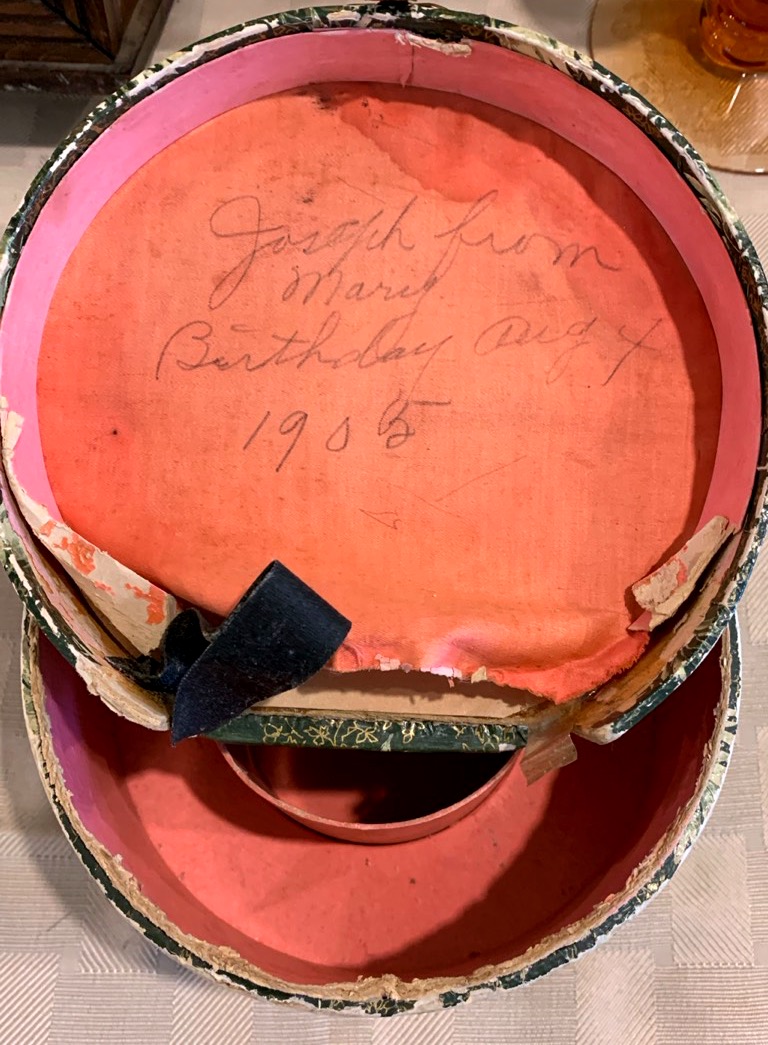 Joseph from
Mary
Birthday Aug 4
1905